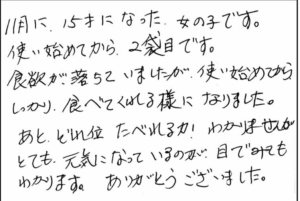 11月に、15才になった、女の子です。
使い始めてから、2袋目です。
食欲が落ちていましたが、使い始めてから
しっかり、食べてくれる様になりました。
あと、どれ位 たべれるか！ わかりませんが
とても、元気になっているのが、目でみても
わかります。 ありがとうございました。